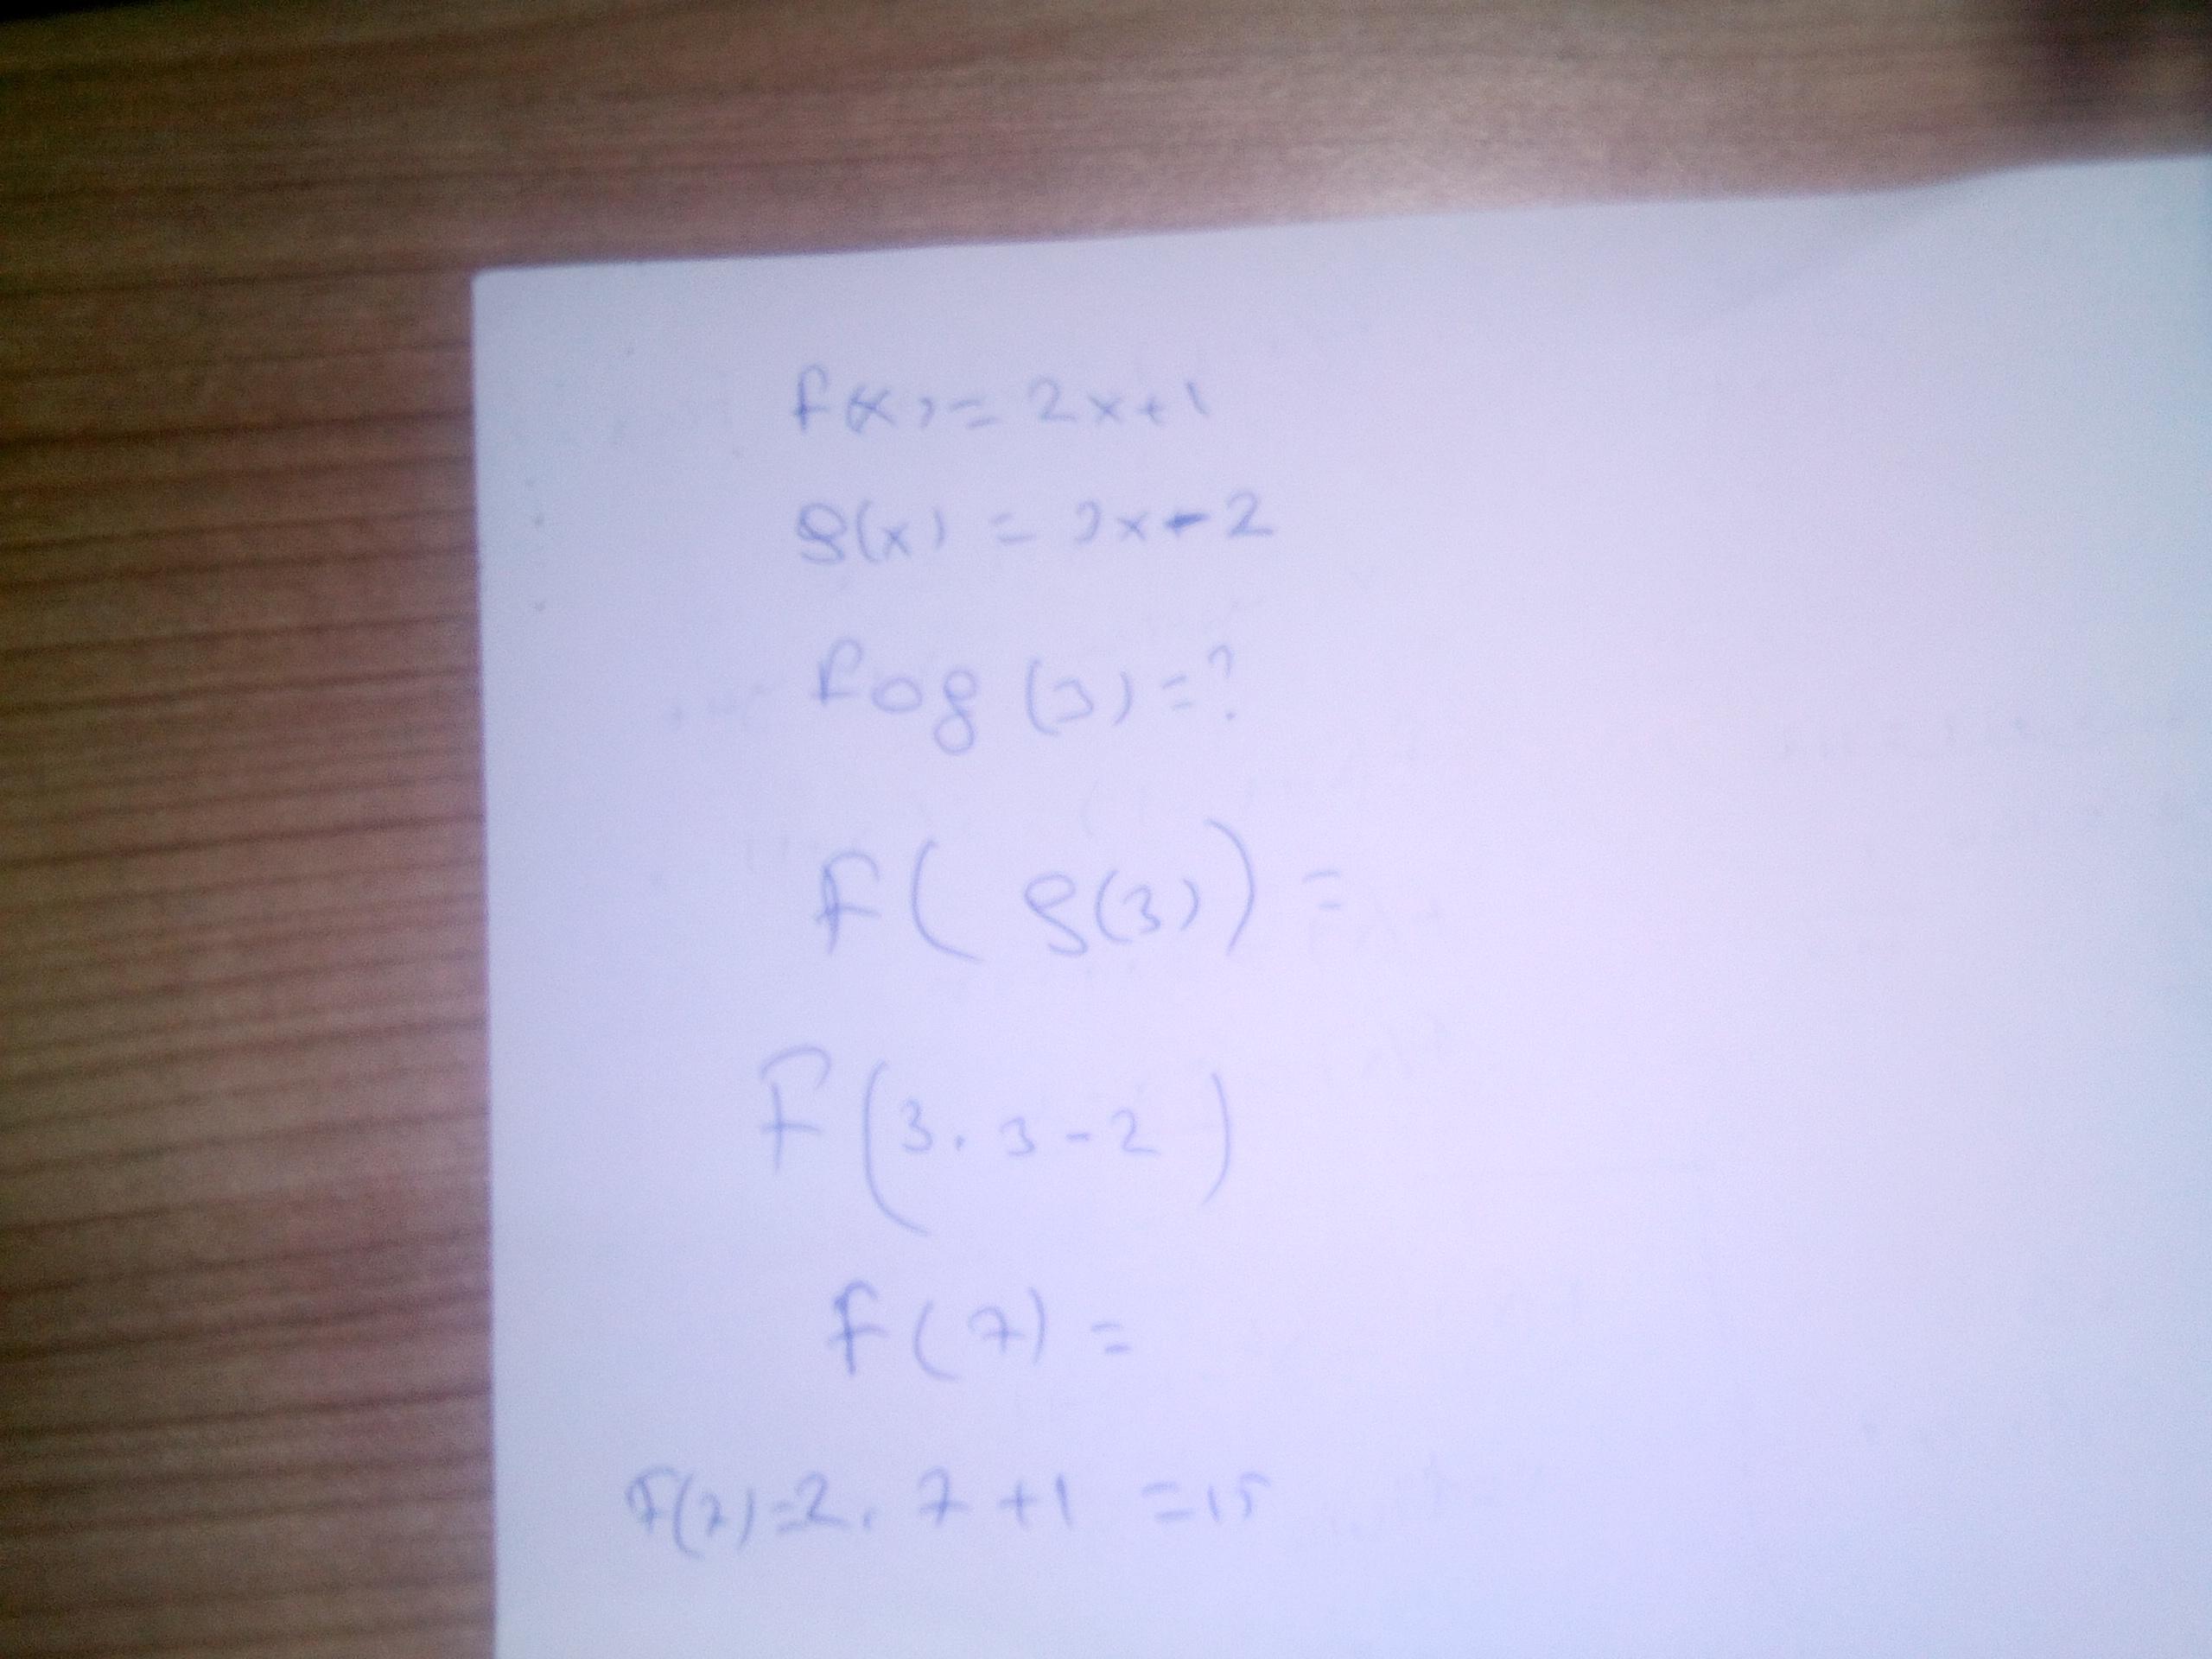 f(x) = 2x+1
g(x) = 3x-2
fog (3) = ?
F( g(3)) =
F(3.3-2)
F(7) =
F(7)=2.7+1 =15